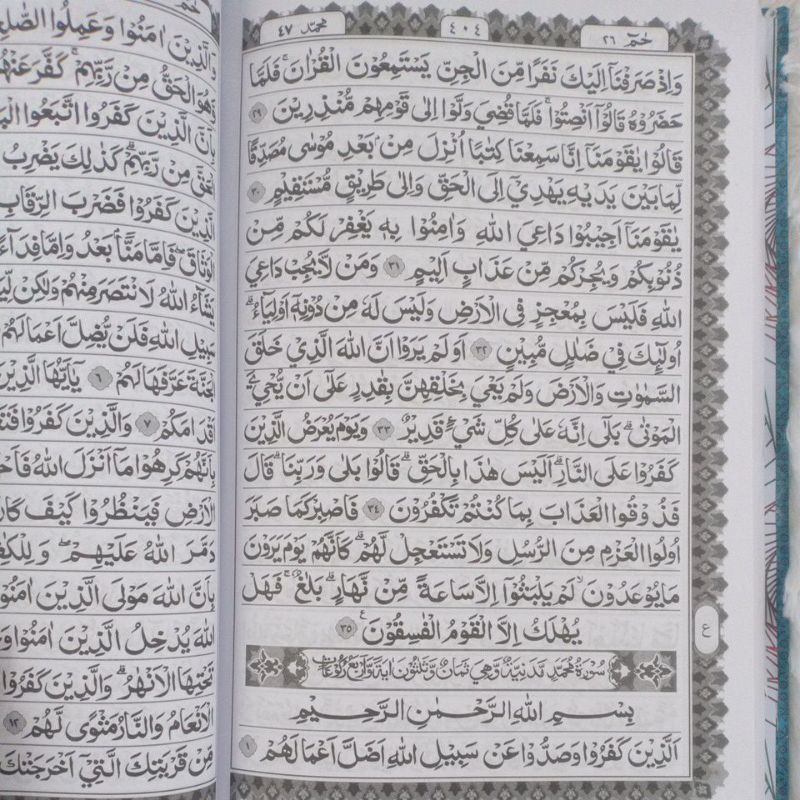 حٰمٓ ٢٦
٤٠٤
محمّد ٤٧
وَاِذْ صَرَفْنَآ اِلَيْكَ نَفَرًا مِّنَ الْجِنِّ يَسْتَمِعُوْنَ الْقُرْاٰنَۚ فَلَمَّا
حَضَرُوْهُ قَالُوْٓا اَنْصِتُوْاۚ فَلَمَّا قُضِيَ وَلَّوْا اِلٰى قَوْمِهِمْ مُّنْذِرِيْنَ ٢٩
قَالُوْا يٰقَوْمَنَآ اِنَّا سَمِعْنَا كِتٰبًا اُنْزِلَ مِنْۢ بَعْدِ مُوْسٰى مُصَدِّقًا
لِّمَا بَيْنَ يَدَيْهِ يَهْدِيْٓ اِلَى الْحَقِّ وَاِلٰى طَرِيْقٍ مُّسْتَقِيْمٍ ٣٠
يٰقَوْمَنَآ اَجِيْبُوْا دَاعِيَ اللّٰهِ وَاٰمِنُوْا بِهٖ يَغْفِرْ لَكُمْ مِّنْ
ذُنُوْبِكُمْ وَيُجِرْكُمْ مِّنْ عَذَابٍ اَلِيْمٍ ٣١ وَمَنْ لَّا يُجِبْ دَاعِيَ
اللّٰهِ فَلَيْسَ بِمُعْجِزٍ فِى الْاَرْضِ وَلَيْسَ لَهٗ مِنْ دُوْنِهٖٓ اَوْلِيَاۤءُۗ
اُولٰۤىِٕكَ فِيْ ضَلٰلٍ مُّبِيْنٍ ٣٢ اَوَلَمْ يَرَوْا اَنَّ اللّٰهَ الَّذِيْ خَلَقَ
السَّمٰوٰتِ وَالْاَرْضَ وَلَمْ يَعْيَ بِخَلْقِهِنَّ بِقٰدِرٍ عَلٰٓى اَنْ يُّحْيِۦَ
الْمَوْتٰىۗ بَلٰٓى اِنَّهٗ عَلٰى كُلِّ شَيْءٍ قَدِيْرٌ ٣٣ وَيَوْمَ يُعْرَضُ الَّذِيْنَ
كَفَرُوْا عَلَى النَّارِۗ اَلَيْسَ هٰذَا بِالْحَقِّۗ قَالُوْا بَلٰى وَرَبِّنَاۗ قَالَ
فَذُوْقُوا الْعَذَابَ بِمَا كُنْتُمْ تَكْفُرُوْنَ ٣٤ فَاصْبِرْ كَمَا صَبَرَ
اُولُوا الْعَزْمِ مِنَ الرُّسُلِ وَلَا تَسْتَعْجِلْ لَّهُمْۗ كَاَنَّهُمْ يَوْمَ يَرَوْنَ
مَا يُوْعَدُوْنَۙ لَمْ يَلْبَثُوْٓا اِلَّا سَاعَةً مِّنْ نَّهَارٍۗ بَلٰغٌۚ فَهَلْ
يُهْلَكُ اِلَّا الْقَوْمُ الْفٰسِقُوْنَ ٣٥
ع
سورة محمد مدنية وهي ثمان وثلثون اية واربع ركوعات
بِسْمِ اللّٰهِ الرَّحْمٰنِ الرَّحِيْمِ
اَلَّذِيْنَ كَفَرُوْا وَصَدُّوْا عَنْ سَبِيْلِ اللّٰهِ اَضَلَّ اَعْمَالَهُمْ ١
حٰمٓ
وَالَّذِيْنَ اٰمَنُوْا وَعَمِلُوا
وَّهُوَ الْحَقُّ مِنْ رَّبِّهِمْۚ كَفَّرَ
بِاَنَّ الَّذِيْنَ كَفَرُوا اتَّبَعُوا
الْحَقَّ مِنْ رَّبِّهِمْۗ كَذٰلِكَ يَضْرِبُ
الَّذِيْنَ كَفَرُوْا فَضَرْبَ الرِّقَابِ
الْوَثَاقَۖ فَاِمَّا مَنًّاۢ بَعْدُ وَاِمَّا فِدَاۤءً
يَشَاۤءُ اللّٰهُ لَانْتَصَرَ مِنْهُمْ وَلٰكِنْ
سَبِيْلِ اللّٰهِ فَلَنْ يُّضِلَّ اَعْمَالَهُمْ
الْجَنَّةَ عَرَّفَهَا لَهُمْ ٦ يٰٓاَيُّهَا الَّذِيْنَ
اَقْدَامَكُمْ ٧ وَالَّذِيْنَ كَفَرُوْا
بِاَنَّهُمْ كَرِهُوْا مَآ اَنْزَلَ اللّٰهُ
الْاَرْضِ فَيَنْظُرُوْا كَيْفَ
دَمَّرَ اللّٰهُ عَلَيْهِمْۖ
بِاَنَّ اللّٰهَ مَوْلَى الَّذِيْنَ اٰمَنُوْا
اللّٰهَ يُدْخِلُ الَّذِيْنَ اٰمَنُوْا
تَحْتِهَا الْاَنْهٰرُۗ وَالَّذِيْنَ كَفَرُوْا
الْاَنْعَامُ وَالنَّارُ مَثْوًى لَّهُمْ ١٢
مِّنْ قَرْيَتِكَ الَّتِيْٓ اَخْرَجَتْكَ